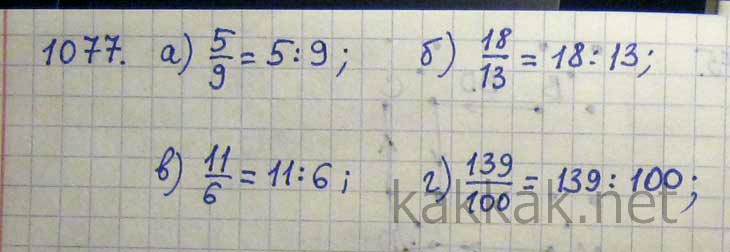 1077. а) 5/9 = 5:9; б) 18/13 = 18:13;
в) 11/6 = 11:6; г) 139/100 = 139:100;
kakkak.net